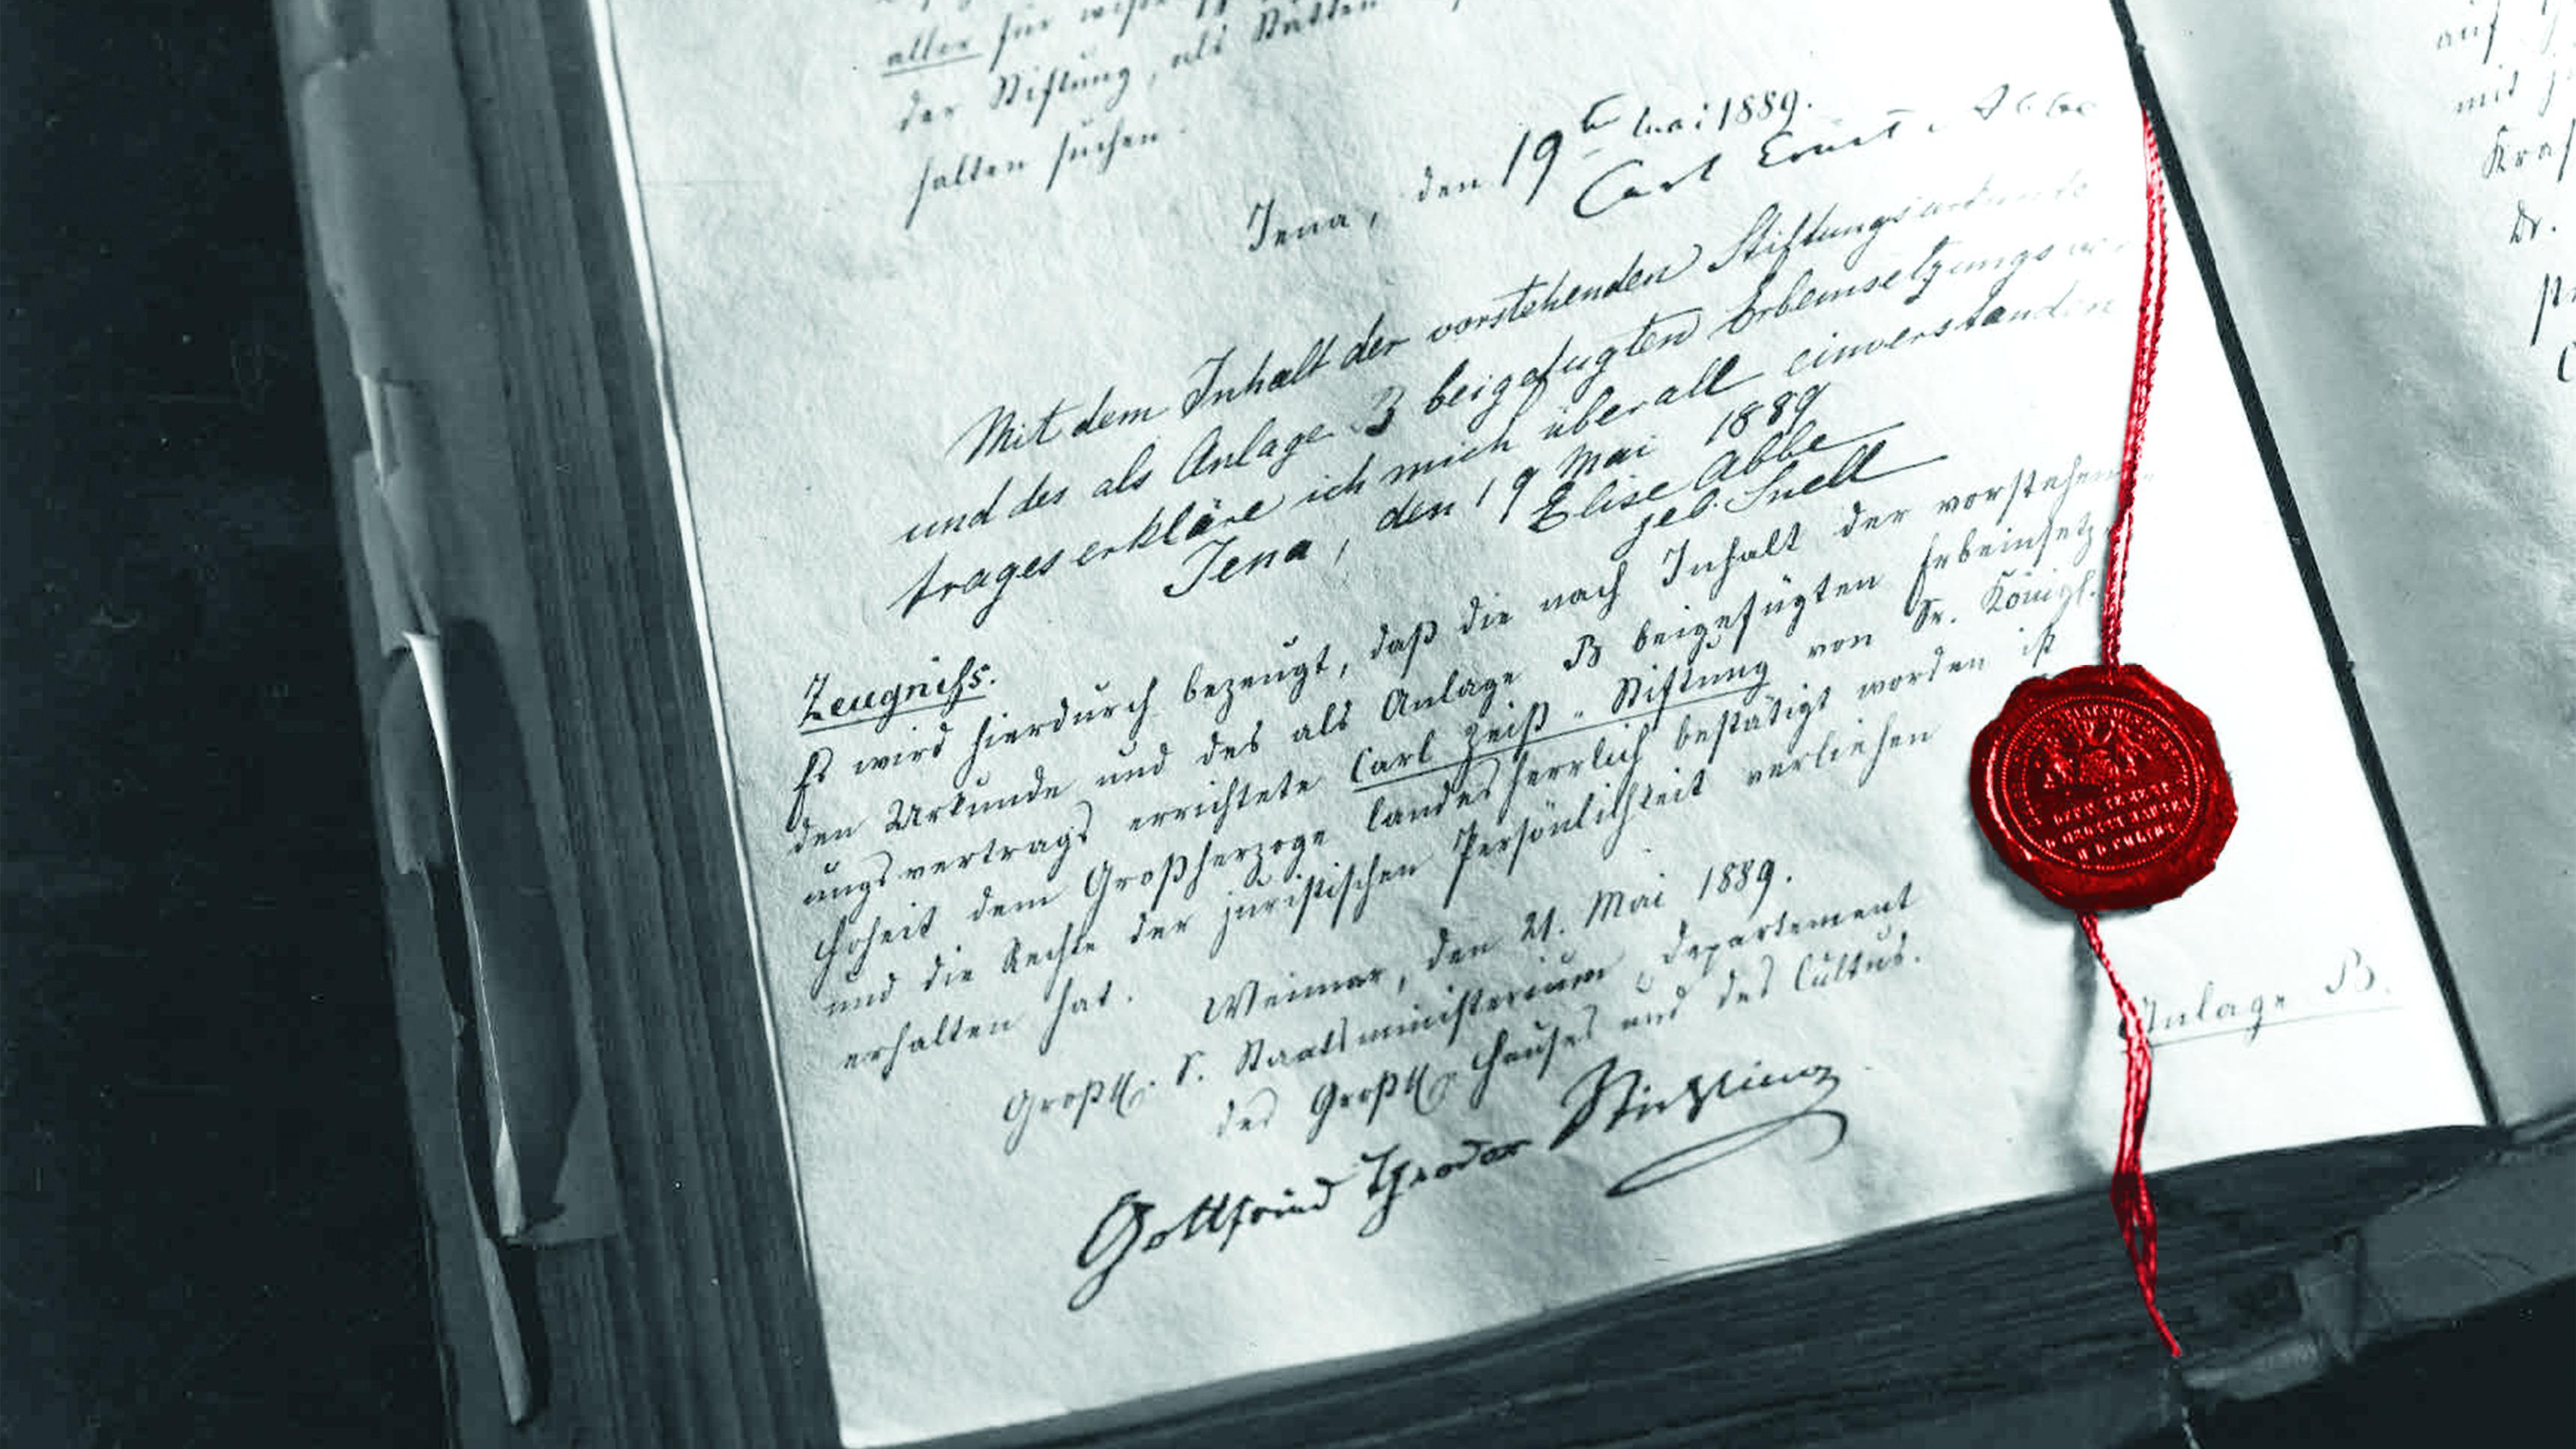 aller für
der Stiftung, als Stätten
halten suchen.
Jena, den 19ten Mai 1889.
Carl Ernst Abbe
Mit dem Inhalt der vorstehenden Stiftungsurkunde
und des als Anlage B beigefügten Erbeinsetzungsver
trages erkläre ich mich überall einverstanden
Jena, den 19 Mai 1889
Elise Abbe
geb. Snell
Zeugniss.
Es wird hierdurch bezeugt, daß die nach Inhalt der vorstehen
den Urkunde und des als Anlage B beigefügten Erbeinsetz
ungsvertrags errichtete Carl Zeiß-Stiftung von Sr. Königl.
Hoheit dem Großherzoge landesherrlich bestätigt worden ist
und die Rechte der juristischen Persönlichkeit verliehen
erhalten hat. Weimar, den 21. Mai 1889.
Großh. S. Staatsministerium, Departement
des Großh. Hauses und des Cultus.
Gottfried Theodor Stichling
Anlage B.
auf
mit
Dr.